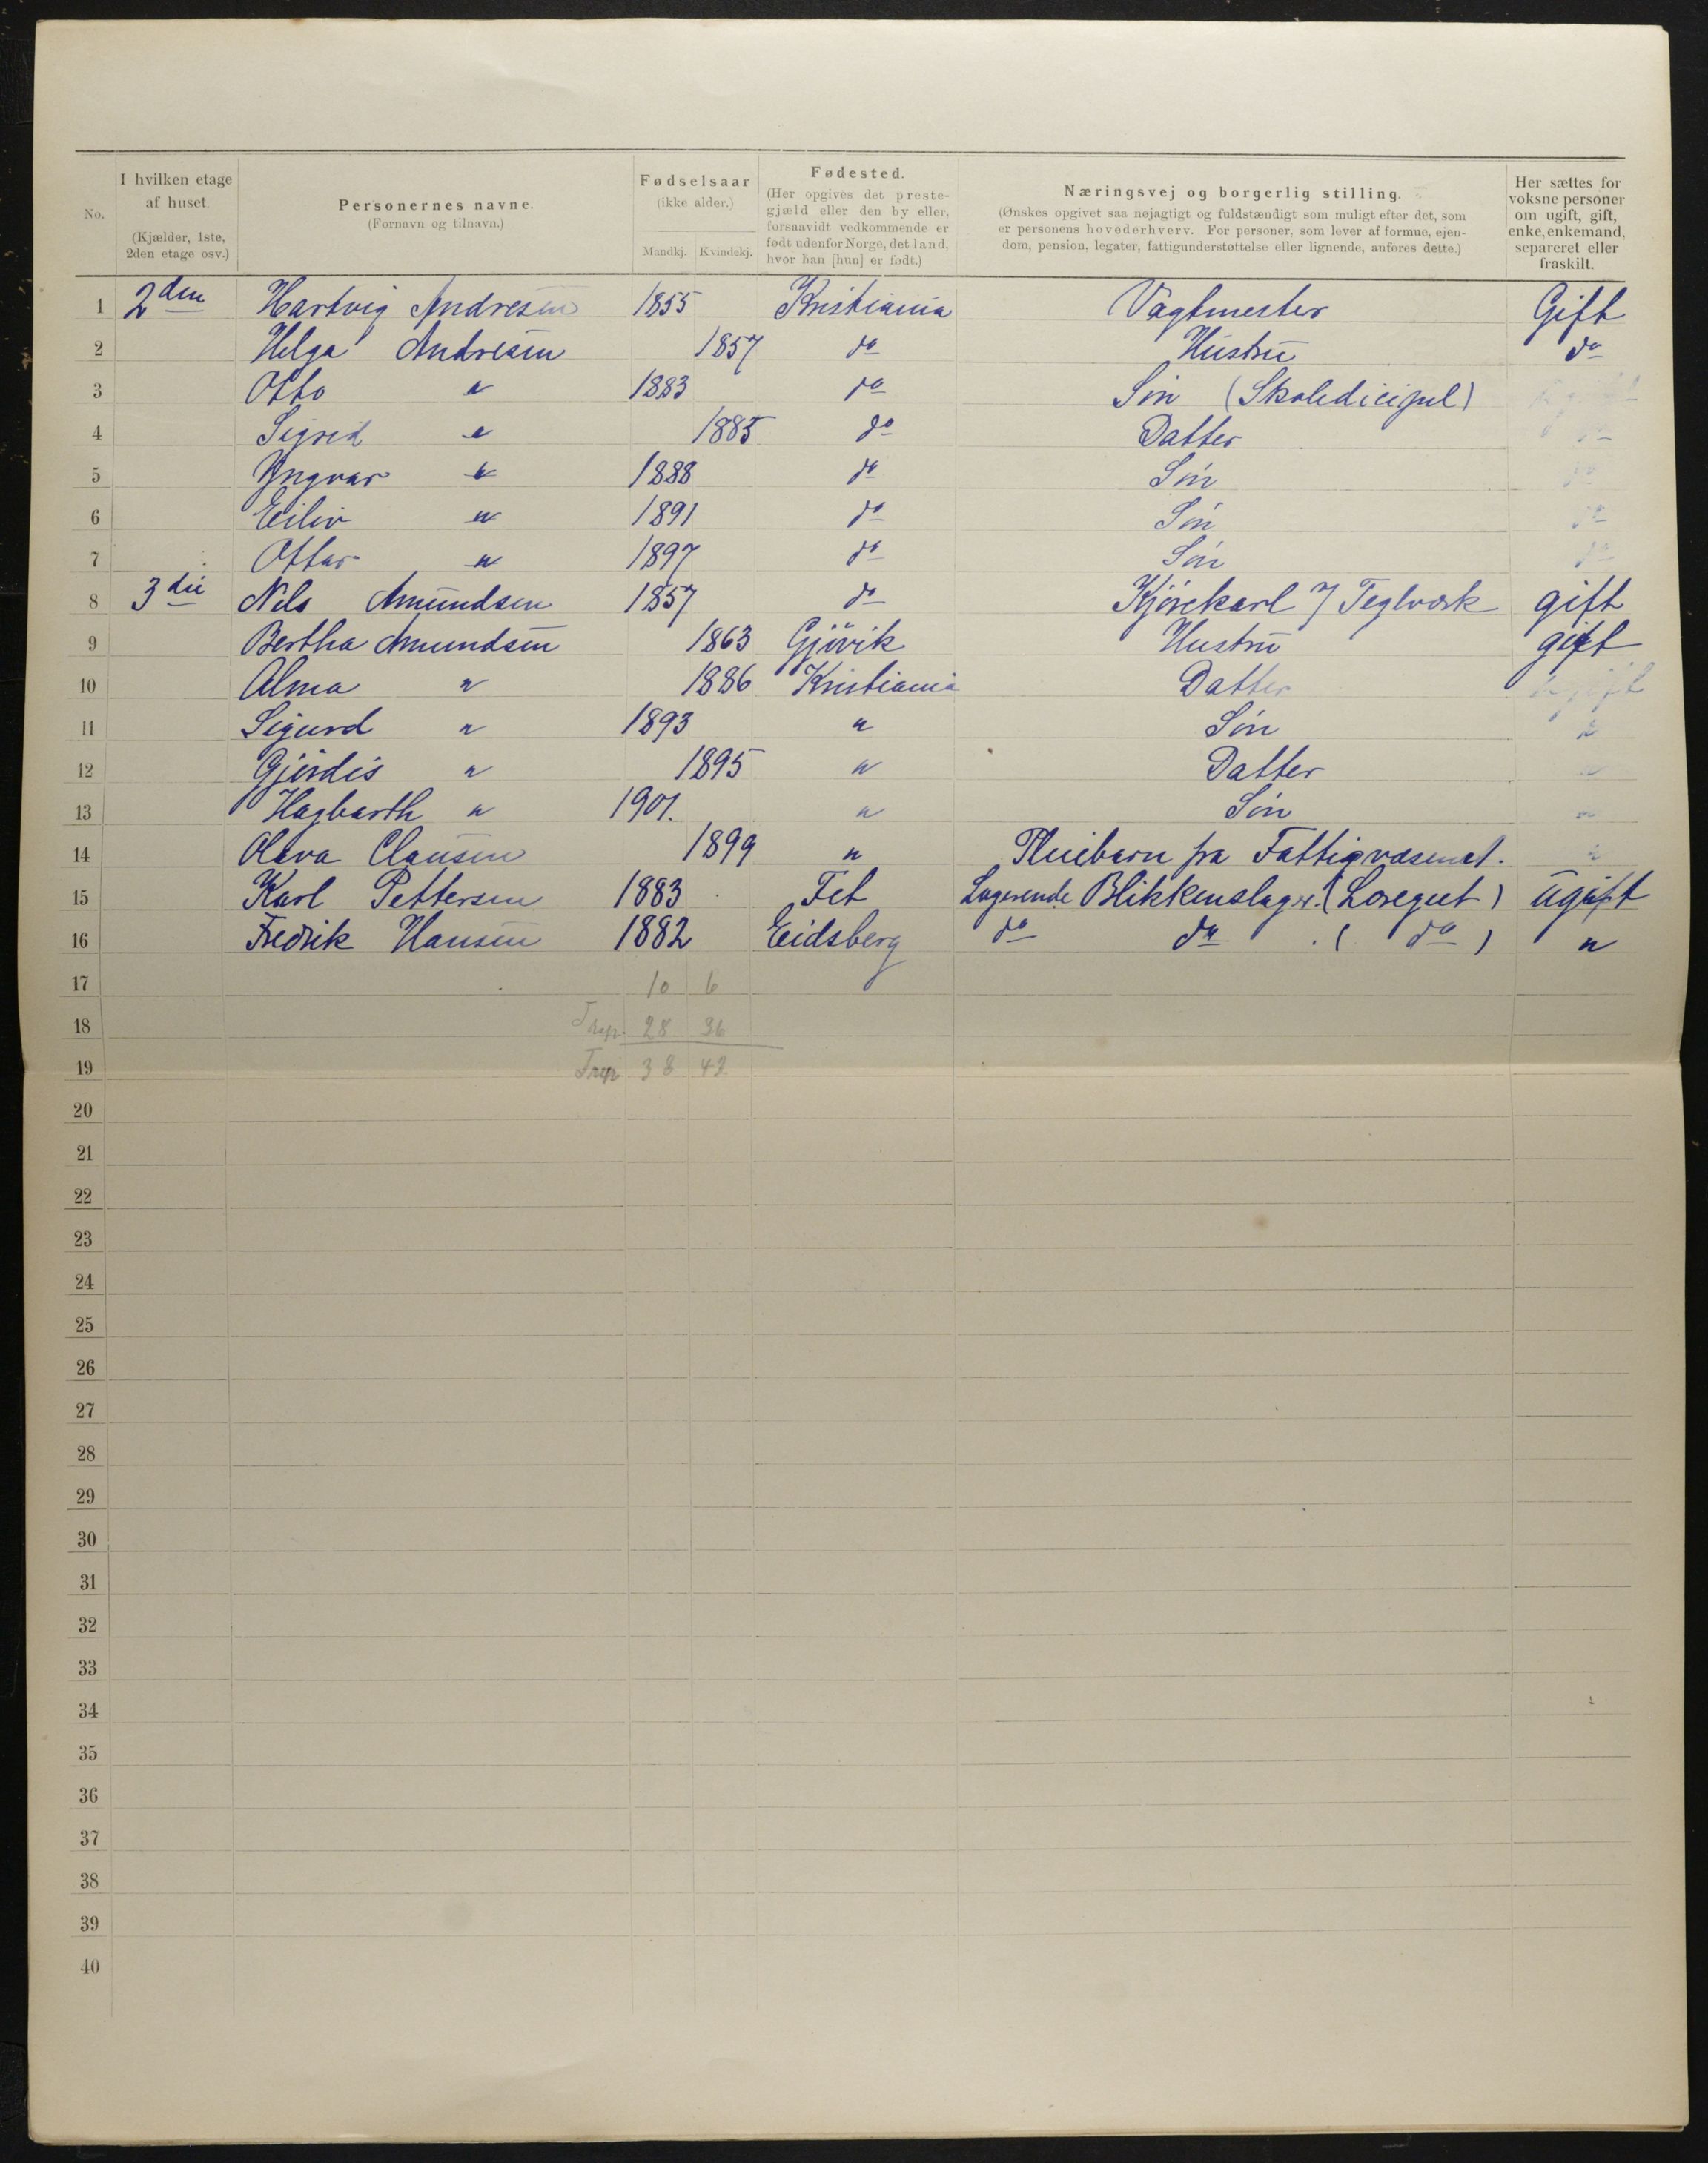 No.
I hvilken etage af huset. (Kjælder, 1ste, 2den etage osv.)
Personernes navne. (Fornavn og tilnavn.)
Fødselsaar (ikke alder.) Mandkj. Kvindekj.
Fødested. (Her opgives det prestegjæld eller den by eller, forsaavidt vedkommende er født udenfor Norge, det land, hvor han [hun] er født.)
Næringsvej og borgerlig stilling. (Ønskes opgivet saa nøjagtigt og fuldstændigt som muligt efter det, som er personens hovederhverv. For personer, som lever af formue, ejendom, pension, legater, fattigunderstøttelse eller lignende, anføres dette.)
Her sættes for voksne personer om ugift, gift, enke, enkemand, separeret eller fraskilt.
1 2den Hartvig Andresen 1855 Kristiania Vagtmester Gift
2 Helga Andresen 1857 do Hustru do
3 Otto " 1883 do Søn (Skoledicipel)
4 Sigrid " 1885 do Datter do
5 Yngvar " 1888 do Søn do
6 Eiliv " 1891 do Søn do
7 Ottar " 1897 do Søn do
8 3die Nils Amundsen 1857 do Kjørekarl v/ Teglværk gift
9 Bertha Amundsen 1863 Gjøvik Hustru gift
10 Alma " 1886 Kristiania Datter ugift
11 Sigurd " 1893 " Søn "
12 Gjørdis " 1895 " Datter "
13 Hagbarth " 1901. " Søn "
14 Olava Clausen 1899 " Pleiebarn fra Fattigvæsenet. "
15 Karl Pettersen 1883 Fet Logerende Blikkenslager. (Læregut) ugift
16 Fredrik Hansen 1882 Eidsberg do do. (do) "
17 10 6
18 Trsp. 28 36
19 Trsp 38 42
20
21
22
23
24
25
26
27
28
29
30
31
32
33
34
35
36
37
38
39
40